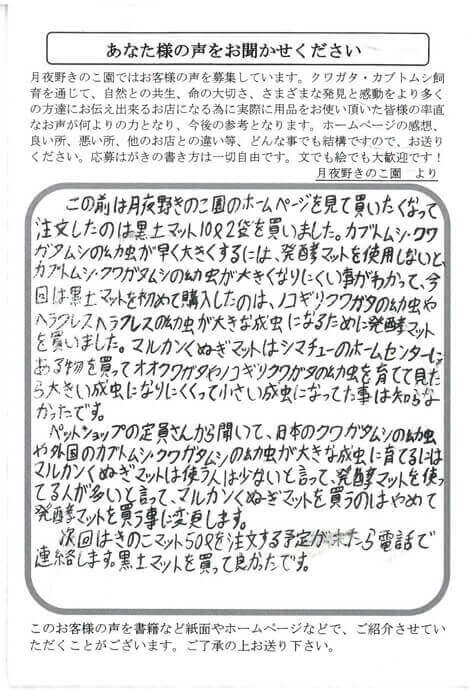 あなた様の声をお聞かせください
月夜野きのこ園ではお客様の声を募集しています。クワガタ・カブトムシ飼
育を通じて、自然との共生、命の大切さ、さまざまな発見と感動をより多く
の方達にお伝え出来るお店になる為に実際に用品をお使い頂いた皆様の率直
なお声が何よりの力となり、今後の参考となります。ホームページの感想、
良い所、悪い所、他のお店との違い等、どんな事でも結構ですので、お送り
ください。応募はがきの書き方は一切自由です。文でも絵でも大歓迎です！
月夜野きのこ園　より
この前は月夜野きのこ園のホームページを見て買いたくなって
注文したのは黒土マット10ℓ2袋を買いました。カブトムシ・クワ
ガタムシの幼虫が早く大きくするには、発酵マットを使用しないと、
カブトムシ・クワガタムシの幼虫が大きくなりにくい事がわかって、今
回は黒土マットを初めて購入したのは、ノコギリクワガタの幼虫や
ヘラクレスヘラクレスの幼虫が大きな成虫になるために発酵マット
を買いました。マルカンくぬぎマットはシマチューのホームセンターに
ある物を買ってオオクワガタやノコギリクワガタの幼虫を育てて見た
ら大きい成虫になりにくくって小さい成虫になってた事は知らな
かったです。
ペットショップの定員さんから聞いて、日本のクワガタムシの幼虫
や外国のカブトムシ・クワガタムシの幼虫が大きな成虫に育てるには
マルカンくぬぎマットは使う人は少ないと言って、発酵マットを使っ
てる人が多いと言って、マルカンくぬぎマットを買うのはやめて
発酵マットを買う事に変更します。
次回はきのこマット50ℓを注文する予定が来たら電話で
連絡します。黒土マットを買って良かったです。
このお客様の声を書籍など紙面やホームページなどで、ご紹介させてい
ただくことがございます。ご了承の上お送り下さい。